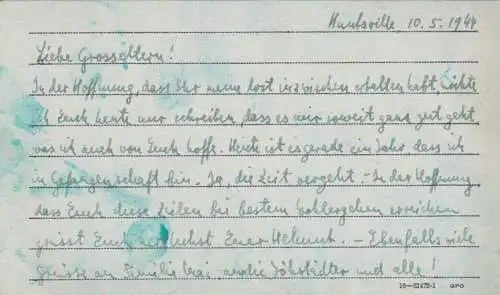 Huntsville, 10.5.1944
Liebe Grosseltern!
In der Hoffnung, dass Ihr meine Post inzwischen erhalten habt, möchte
ich Euch heute nur schreiben, dass es mir soweit ganz gut geht,
was ich auch von Euch hoffe. Heute ist es gerade ein Jahr dass ich
in Gefangenschaft bin. Ja, die Zeit vergeht. – In der Hoffnung,
dass Euch diese Zeilen bei bestem Wohlergehen erreichen
grüsst Euch herzlichst Euer Helmut. – Ebenfalls viele
Grüsse an Familie und alle!
16—51472-1 GPO